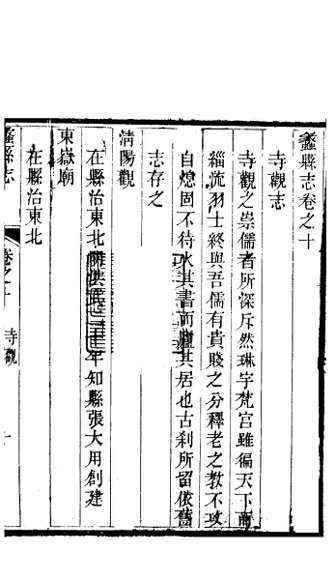 蠡縣志卷之十
寺觀志
寺觀之崇儒者所深斥然琳宇梵宮雖徧天下而
緇流羽士終與吾儒有貴賤之分釋老之教不攻
自熄固不待火其書而廬其居也古刹所留依舊
志存之
清陽觀
在縣治東北洪武二年知縣張大用創建
東嶽廟
在縣治東北
蠡縣志
卷之十
寺觀
一